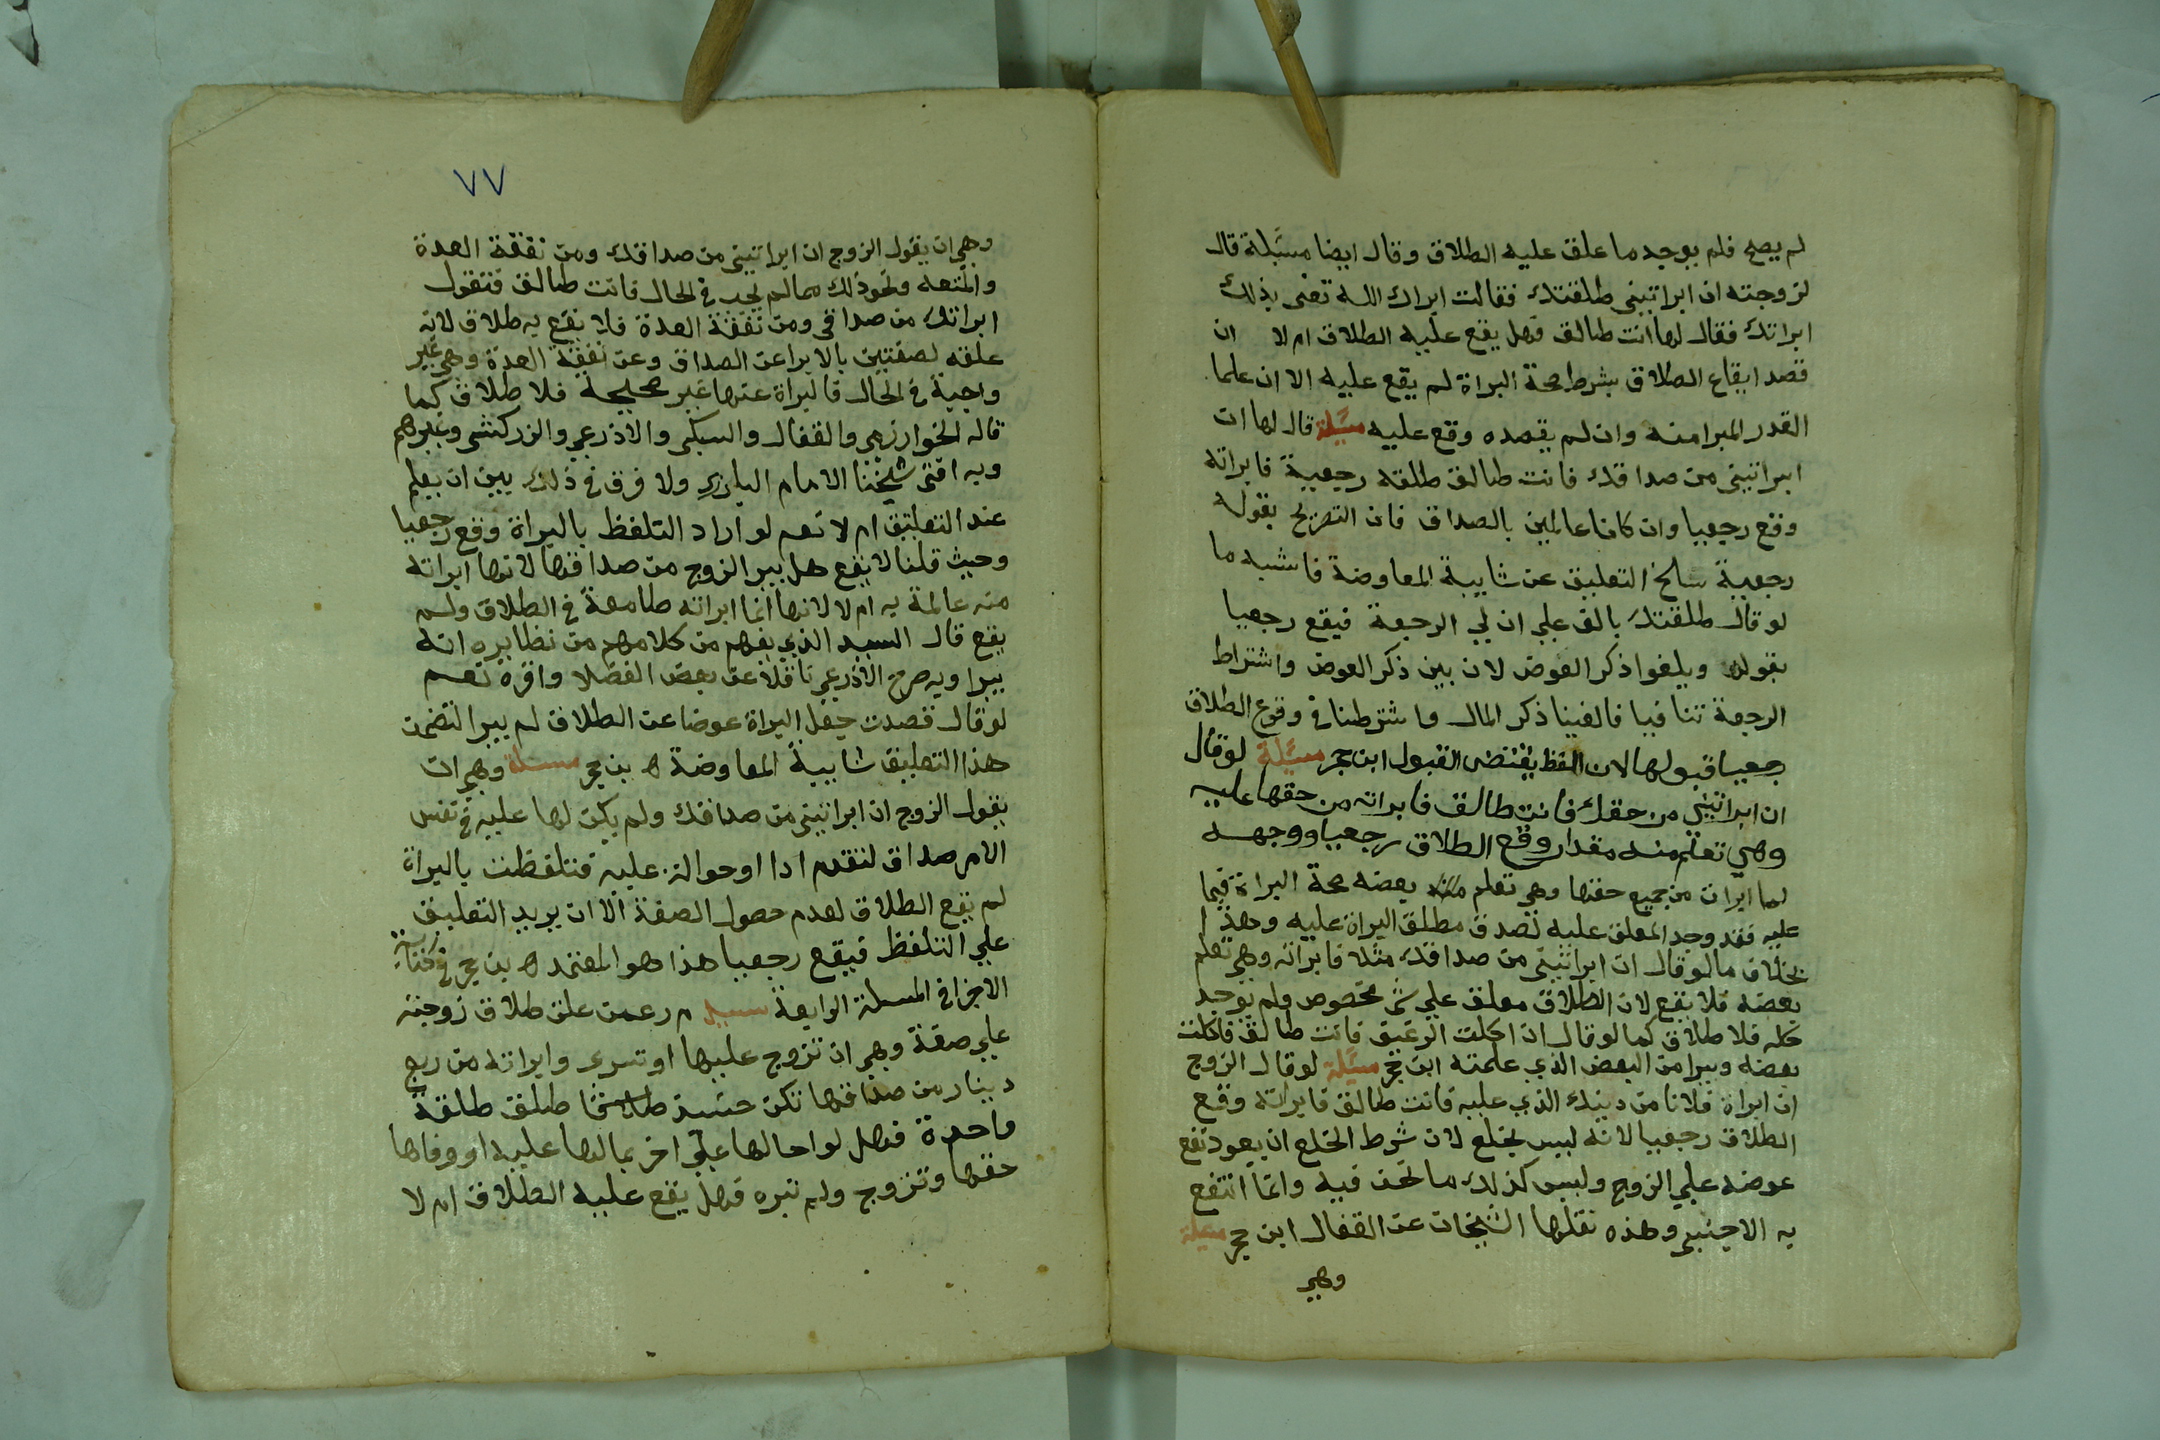 لم يصح فلم يوجد ما علق عليه الطلاق وقال ايضا مسئلة قال
لزوجته ان ابراتيني طلقتك فقالت ابراك الله تعني بذلك
ابراتك فقال لها انت طالق فهل يقع عليه الطلاق ام لا ان
قصد ايقاع الطلاق بشرط صحة البراة لم يقع عليه الا ان علما
القدر المبرا منه وان لم يقصده وقع عليه مسئلة قال لها ان
ابراتيني من صداقك فانت طالق طلقه رجعية فابراته
وقع رجعيا وان كانا عالمين بالصداق فان التصريح بقوله
رجعية سلخ التعليق عن شايبة المعاوضة فاشبه ما
لو قال طلقتك بالف علي ان لي الرجعة فيقع رجعيا
بقوله ويلغوا ذكر العوض لان بين ذكر العوض واشتراط
الرجعة تنافيا فالغينا ذكر المال واشترطنا في وقوع الطلاق
جعيا قبولها لان اللفظ يقتضى القبول ابن حجر مسئلة لو قال
ان ابراتيني من حقك فانت طالق فابراته من حقها عليه
وهي تعلم منه مقدار وقع الطلاق رجعيا ووجهه
لما ابرات من جميع حقها وهي تعلم بعضه صحة البراة فيما
عليه فقد وجد المعلق عليه تصدق مطلق البراة عليه وهذا
بخلاف ما لو قال ان ابراتيني من صداقك مثلا فابراته وهي تعلم
بعضه فلا يقع لان الطلاق معلق علي شي مخصوص ولم يوجد
كله فلا طلاق كما لو قال ان اكلت الرغيف فانت طالق فاكلت
بعضه ويبرا من البعض الذي علمته ابن حجر مسئلة لو قال الزوج
ان ابراة فلانا من دينك الذي عليه فانت طالق فابراته وقع
الطلاق رجعيا لانه ليس بخلع لان شرط الخلع ان يعود نفع
عوضه علي الزوج وليس كذلك ما نحن فيه وانما انتفع
به الاجنبي وهذه نقلها الشيخان عن القفال ابن حجر مسئلة
وهي
٧٧
وهي ان يقول الزوج ان ابراتيني من صداقك ومن نفقة العدة
والمتعه ونحو ذلك مما لم يجب في الحال فانت طالق فتقول
ابراتك من صداقي ومن نفقة العدة فلا يقع به طلاق لانه
علقه لصفتين بالابرا عن الصداق وعن نفقة العدة وهي غير
واجبة في الحال فالبراة عنها غير صحيحة فلا طلاق كما
قاله الخوارزمي والقفال والسبكي والاذرعي والزركشي وغيرهم
وبه افتى شيخنا الامام البارزي ولا فرق في ذلك بين ان يعلم
عند التعليق ام لا نعم لو اراد التلفظ بالبراة وقع رجعيا
وحيث قلنا لا يقع هل يبر الزوج من صداقها لانها ابراته
منه عالمة به ام لا لانها انما ابراته طامعة في الطلاق ولم
يقع قال السيد الذي يفهم من كلامهم من نظايره انه
يبرا وبه صرح الاذرعي ناقلا عن بعض الفضلا واقره نعم
لو قال قصدت جعل البراة عوضا عن الطلاق لم يبرا لتضمن
هذا التعليق شايبة المعاوضة ه بن حجر مسئلة وهي ان
يقول الزوج ان ابراتيني من صداقك ولم يكن لها عليه في نفس
الامر صداق لتقدم ادا او حوالة عليه فتلفظت بالبراة
لم يقع الطلاق لعدم حصول الصفة الا ان يريد التعليق
علي التلفظ فيقع رجعيا هذا هو المعتمد ه بن حجر في
الاجزا في المسلة الرابعة سيل م ر عمن علق طلاق زوجته
علي صفة وهي ان تزوج عليها او تسرى وابراته من ربع
دينار من صداقها تكن حينئذ طالقا طلق طلقة
واحدة فهل لو احالها علي اخر بمالها عليه او وفاها
حقها وتزوج ولم تبره فهل يقع عليه الطلاق ام لا